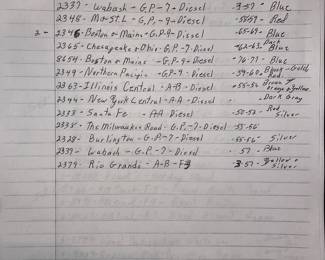 2337 - Wabash - G.P. - 7 - Diesel - 57 - Blue
2348 - M + ST.L - G.P. - 9 - Diesel - 58-59 - Red
2 - 2346 - Boston + Maine - G.P.-9 - Diesel - 65-67 - Blue
2365 - Chesapeake + Ohio - G.P.-7 - Diesel - 62-63 - Blue
8654 - Boston + Maine - G.P.-9 - Diesel - 76-77 - Blue
2349 - Northern Pacific - G.P.-9 - Diesel - 59-60 - Black - Gold + Red
2363 - Illinois Central - A-B - Diesel - 55-56 Brown + orange + yellow
2344 - New York Central - A-A - Diesel - - Dark Gray
2333 - Santa Fe - AA Diesel - Red + Silver
2338 - The Milwaukee Road - G.P.-7 - Diesel - 55-56
2328 - Burlington - G.P.-7 - Diesel - 55-56 - Silver
2337 - Wabash - G.P. - 7 - Diesel - 57 - Blue
2379 - Rio Grande - A-B - F3 - 57 - Yellow + Silver